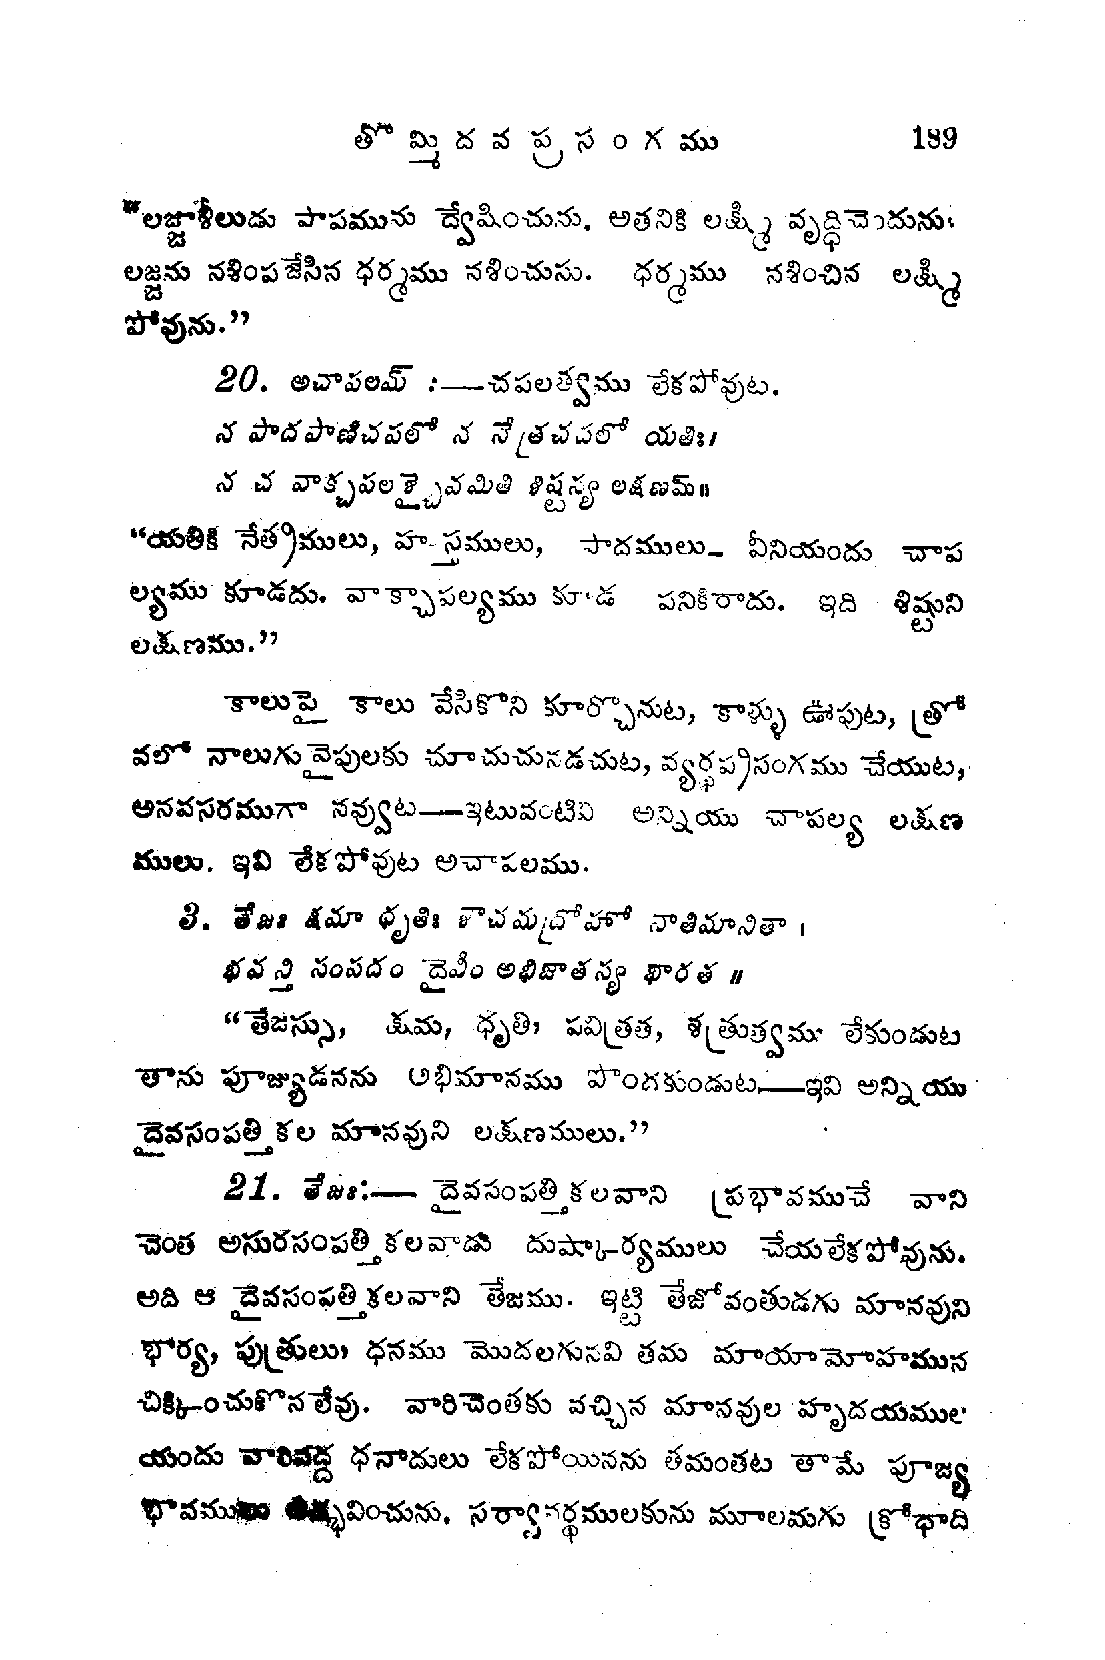 తొమ్మిదవ ప్రసంగము 189
"లజ్జాశీలుడు పాపమును ద్వేషించును. అతనికి లక్ష్మి వృద్ధిచెందును;
లజ్జను నశింపజేసిన ధర్మము నశించును. ధర్మము నశించిన లక్ష్మి
పోవును."
20. అచాపలమ్ :—చపలత్వము లేకపోవుట.
న పాదపాణిచపలో న నేత్రచపలో యతిః।
న చ వాక్చపలశ్చైవమితి శిష్టస్య లక్షణమ్॥
"యతికి నేత్రములు, హస్తములు, పాదములు– వీనియందు చాప
ల్యము కూడదు. వాక్చాపల్యము కూడ పనికిరాదు. ఇది శిష్టుని
లక్షణము."
కాలుపై కాలు వేసికొని కూర్చొనుట, కాళ్ళు ఊపుట, త్రో
వలో నాలుగువైపులకు చూచుచునడచుట, వ్యర్థప్రసంగము చేయుట,
అనవసరముగా నవ్వుట——ఇటువంటివి అన్నియు చాపల్య లక్షణ
ములు. ఇవి లేకపోవుట అచాపలము.
3. తేజః క్షమా ధృతిః శౌచమద్రోహో నాతిమానితా ।
భవన్తి సంపదం దైవీం అభిజాతస్య భారత ॥
"తేజస్సు, క్షమ, ధృతి, పవిత్రత, శత్రుత్వము లేకుండుట
తాను పూజ్యుడనను అభిమానము పొందకుండుట,——ఇవి అన్నియు
దైవసంపత్తికల మానవుని లక్షణములు."
21. తేజః:— దైవసంపత్తికలవాని ప్రభావముచే వాని
చెంత అసురసంపత్తికలవాడు దుష్కార్యములు చేయలేకపోవును.
అది ఆ దైవసంపత్తికలవాని తేజము. ఇట్టి తేజోవంతుడగు మానవుని
భార్య, పుత్రులు, ధనము మొదలగునవి తమ మాయామోహమున
చిక్కించుకొనలేవు. వారిచెంతకు వచ్చిన మానవుల హృదయముల
యందు వారివద్ద ధనాదులు లేకపోయినను తమంతట తామే పూజ్య
భావములు ఉద్భవించును. సర్వానర్థములకును మూలమగు క్రోధాది